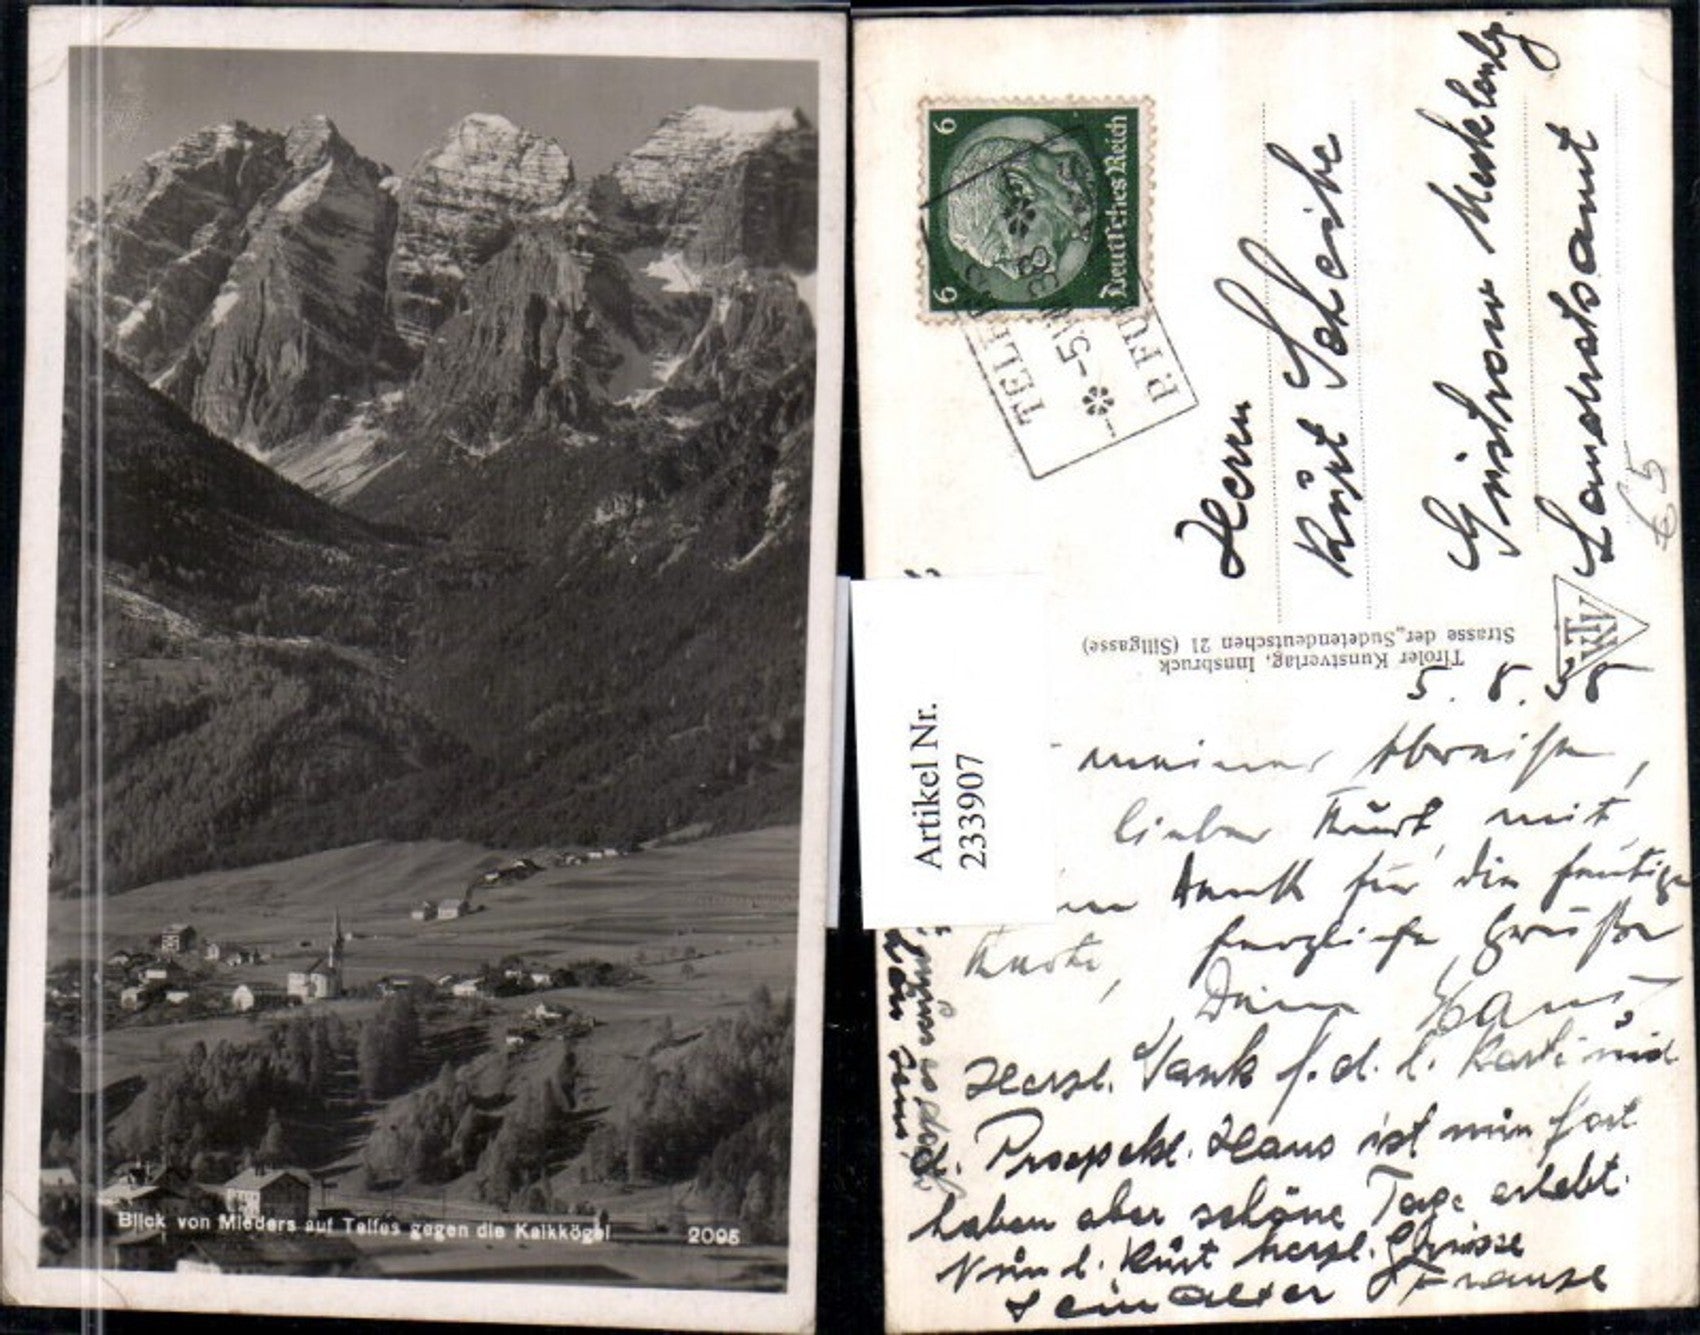 Blick von Mieders auf Telfes gegen die Kalkkögel 2095
6 6
Deutsches Reich
TELF
-5.
P. FU
Herrn
Kurt Scheike
Güstrow
Landratsamt
€ 5
Tiroler Kunstverlag, Innsbruck
Strasse der „Sudetendeutschen 21 (Sillgasse)
TKV
5. 8. 38
Artikel Nr.
233907
meiner Abreise,
lieber Kurt, mit
Dank für die heutige
Karte, herzliche Grüße
Dein Hans
Herzl. Dank f. d. l. Karte und
Prospekt. Hans ist nun fort
haben aber schöne Tage erlebt.
Nun l. Kurt herzl. Grüsse
Dein alter Franzl